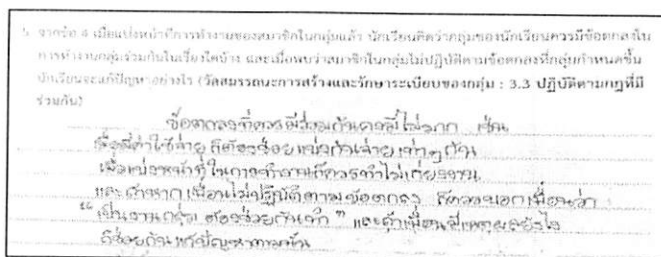 5. จากข้อ 4 เมื่อแบ่งหน้าที่การทำงานของสมาชิกในกลุ่มแล้ว นักเรียนคิดว่ากลุ่มของนักเรียนควรมีข้อตกลงใน
การทำงานกลุ่มร่วมกันในเรื่องใดบ้าง และเมื่อพบว่าสมาชิกในกลุ่มไม่ปฏิบัติตามข้อตกลงที่กลุ่มกำหนดขึ้น
นักเรียนจะแก้ปัญหาอย่างไร (วัดสมรรถนะการสร้างและรักษาระเบียบของกลุ่ม : 3.3 ปฏิบัติตามกฎที่มี
ร่วมกัน)
ข้อตกลงที่ควรมีร่วมกันคงมีไม่มาก เช่น
เมื่อมีค่าใช้จ่าย ก็ต้องช่วยแบ่งกันจ่ายเท่าๆกัน
เมื่อแบ่งหน้าที่ในการทำงานก็ควรทำไม่เกี่ยงงาน
และถ้าหากเพื่อนไม่ปฏิบัติตามข้อตกลง ก็ควรบอกเพื่อนว่า
“เป็นงานกลุ่ม ต้องช่วยกันทำ” และถ้าเพื่อนมีเหตุผลยังไง
ก็ช่วยกันแก้ปัญหาตามนั้น